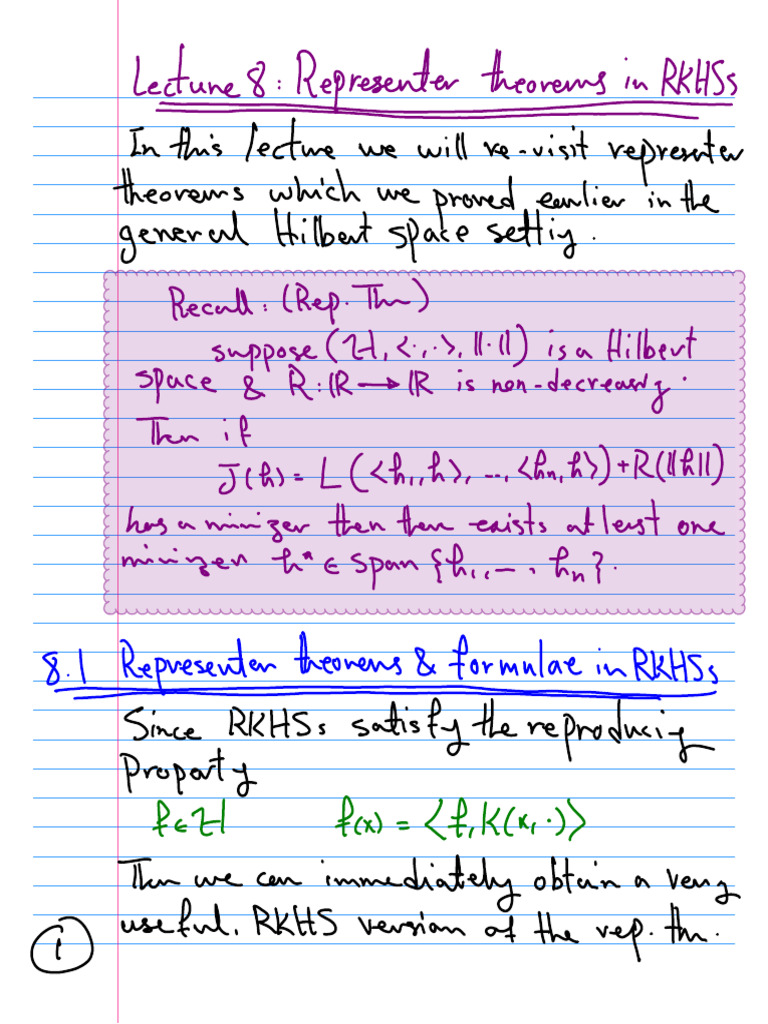 Lecture 8: Representer theorems in RKHSs
In this lecture we will re-visit representer
theorems which we proved earlier in the
general Hilbert space settig.
Recall: (Rep. Thm)
suppose (ℋ, <·,·>, ||·||) is a Hilbert
space & R: ℝ → ℝ is non-decreasig.
Then if
J(h) = L(<h₁, h>, ..., <hₙ, h>) + R(||h||)
has a minizer then then exists at least one
minizer h* ∈ span {h₁, ..., hₙ}.
8.1 Representer theorems & formulae in RKHSs
Since RKHSs satisfy the reproducig
Property
f ∈ ℋ f(x) = <f, K(x, ·)>
Then we can immediately obtain a very
useful. RKHS version of the rep. thm.
1